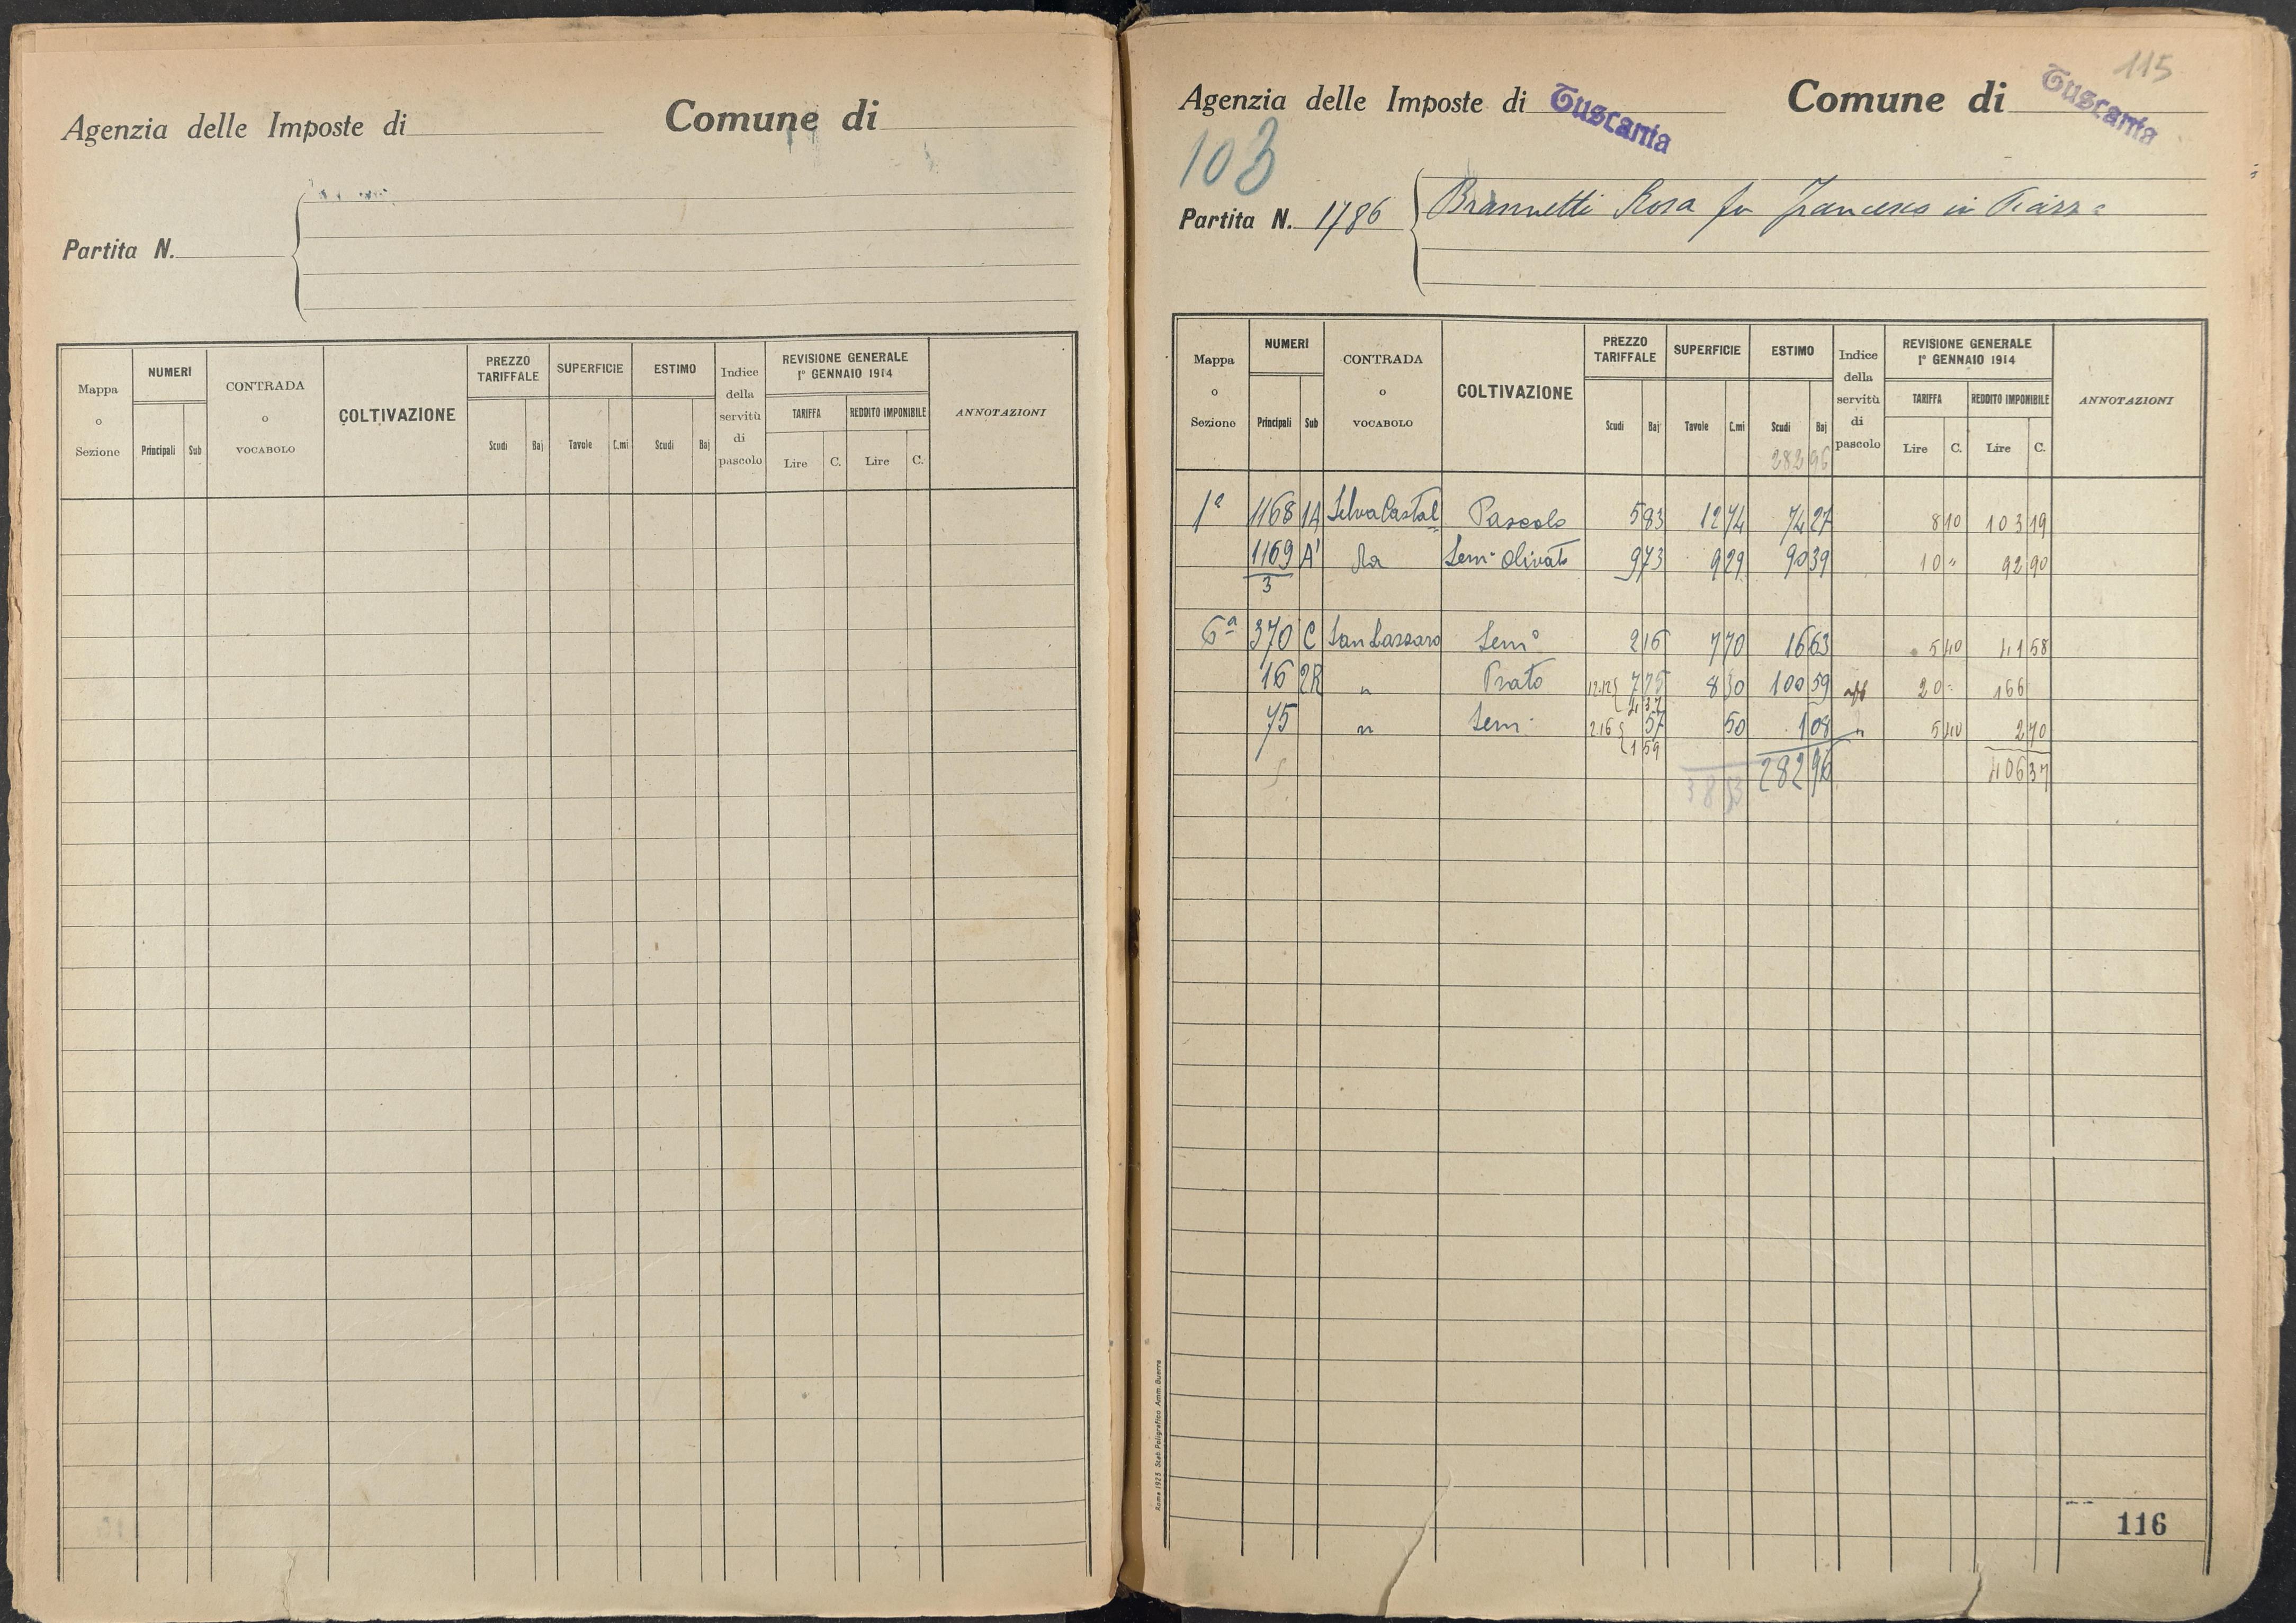 Agenzia delle Imposte di
Comune di
Partita N.
Mappa o Sezione
NUMERI
Principali
Sub
CONTRADA o VOCABOLO
COLTIVAZIONE
PREZZO TARIFFALE
Scudi
Baj
SUPERFICIE
Tavole
C.mi
ESTIMO
Scudi
Baj
Indice della servitù di pascolo
REVISIONE GENERALE
1° GENNAIO 1914
TARIFFA
REDDITO IMPONIBILE
Lire
C.
Lire
C.
ANNOTAZIONI
115
Agenzia delle Imposte di Tuscania
Comune di Tuscania
103
Partita N. 1786
Brannetti Rosa fu Francesco in
Mappa o Sezione
NUMERI
Principali
Sub
CONTRADA o VOCABOLO
COLTIVAZIONE
PREZZO TARIFFALE
Scudi
Baj
SUPERFICIE
Tavole
C.mi
ESTIMO
Scudi
Baj
282 96
Indice della servitù di pascolo
REVISIONE GENERALE
1° GENNAIO 1914
TARIFFA
REDDITO IMPONIBILE
Lire
C.
Lire
C.
ANNOTAZIONI
1ª 1168 1A Selva Castal Pascolo 5 83 12 74 74 27 8 10 103 19
1169 A' la Sem. Olivato 9 73 9 29 90 39 10 " 92 90
3
6ª 370 C San Lazzaro Sem° 2 16 7 70 16 63 5 40 41 58
16 2R " Prato 12.12 7 75 8 30 100 59 aff 20 - 166
4 37
75 " Sem. 2.16 57 50 1 08 " 5 40 2 70
1 59
38 53 282 96 406 37
Roma 1923 Stab. Poligrafico Amm. Guerra
116